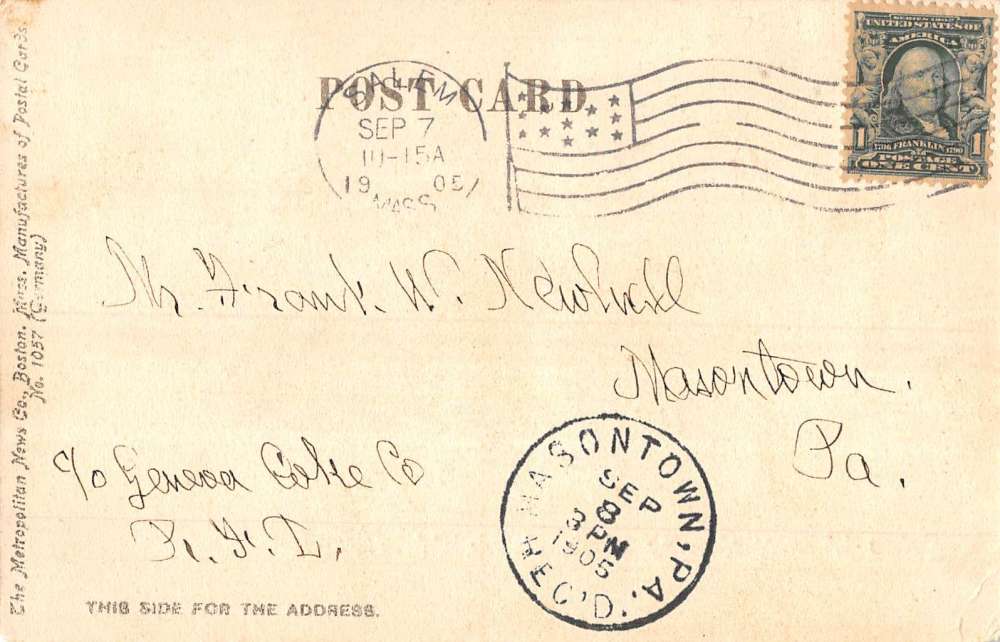 The Metropolitan News Co., Boston, Mass. Manufactures of Postal Cards.
No. 1057 (Germany)
POST CARD
SALEM
SEP 7
10-15A
1905
MASS
SERIES 1902
UNITED STATES OF
AMERICA
1 1706 FRANKLIN 1790 1
POSTAGE
ONE CENT
Mr. Frank. W.
Masontown.
Pa.
c/o Geneva Coke Co
R. F. D.
MASONTOWN, PA.
SEP
8
3PM
1905
REC'D.
THIS SIDE FOR THE ADDRESS.